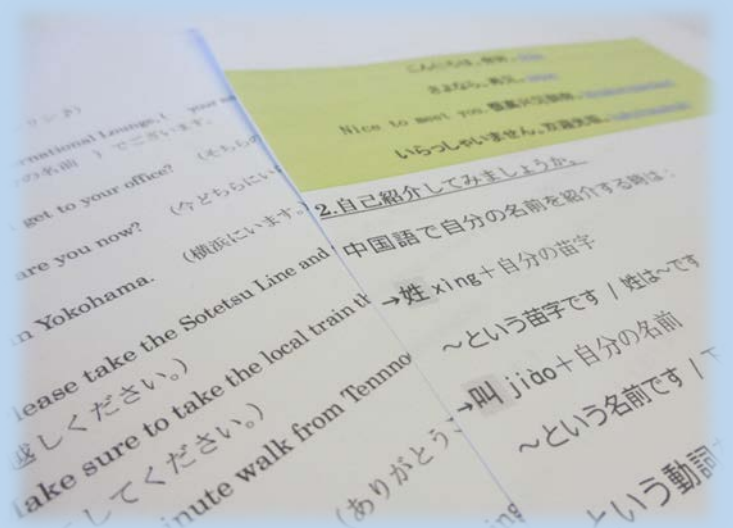 リンク)
ernational Lounge,(
の名前 ) でございます。
get to your office? (そちらの
are you now? (今どちらにい
(横浜にいます。)
n Yokohama.
lease take the Sotetsu Line and
越しください。)
ake sure to take the local train th
してください。)
nute walk from Tennno
(ありがとう
こんにちは。
さよなら。再见。
Nice to meet you.
いらっしゃいません。
2.自己紹介してみましょうか。
中国語で自分の名前を紹介する時は:
→姓 xìng+自分の苗字
~という苗字です / 姓は~です
→叫 jiào+自分の名前
~という名前です /
という動詞
ing